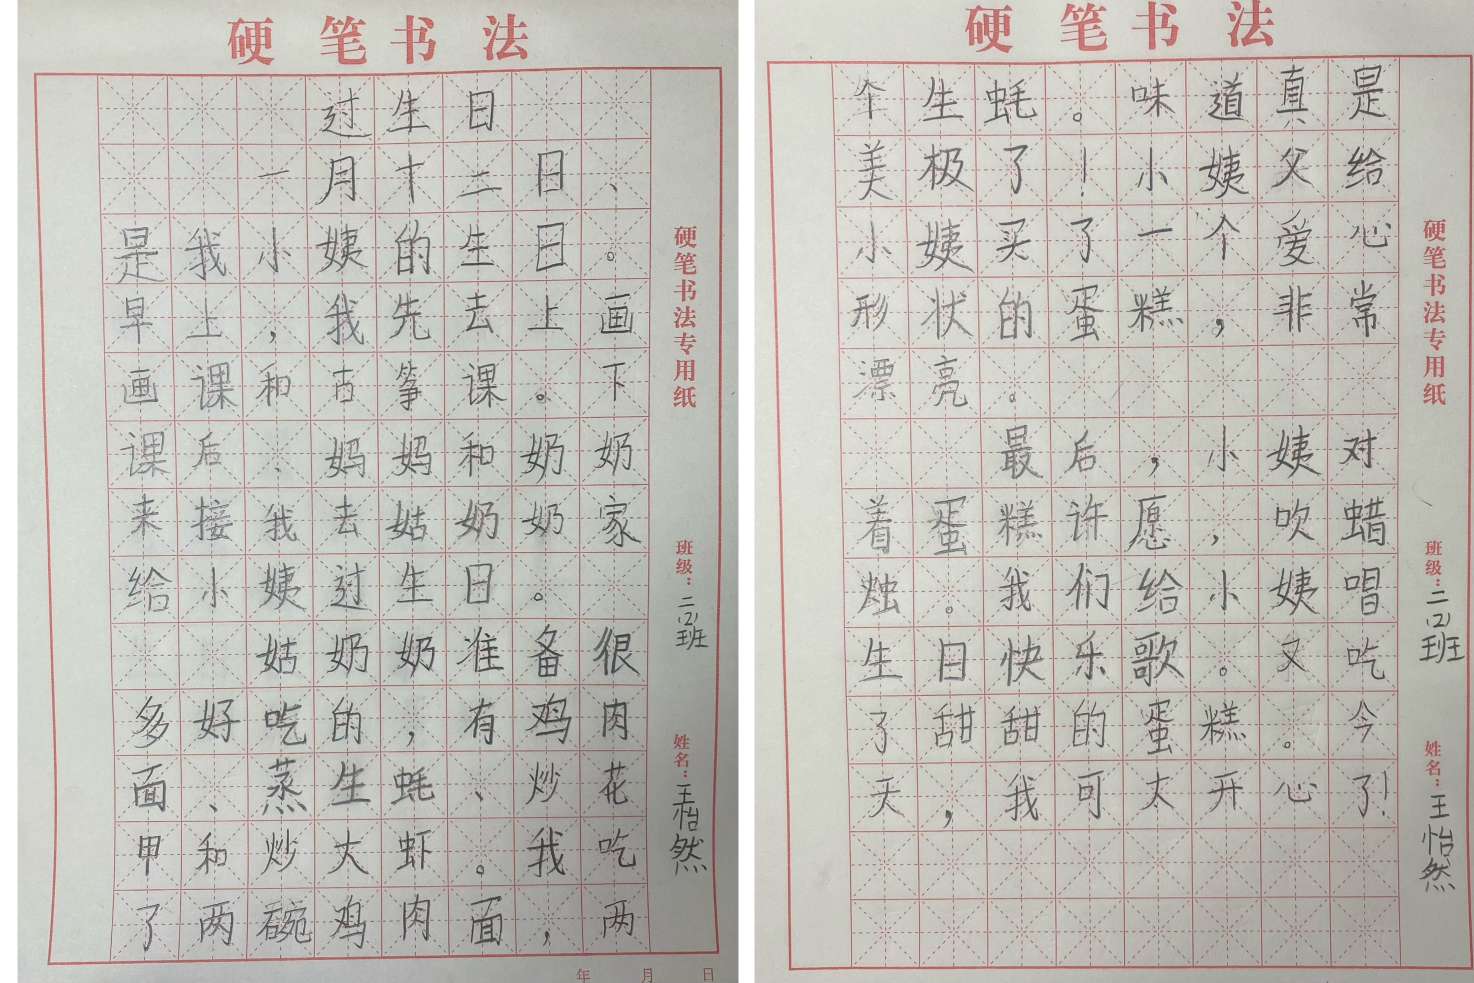 硬笔书法
过生日
一月十二日、
是我小姨的生日。
早上，我先去上画
画课和古筝课。下
课后、妈妈和奶奶
来接我去姑奶奶家
给小姨过生日。
姑奶奶准备很
多好吃的，有鸡肉
面、蒸生蚝、炒花
甲和炒大虾。我吃
了两碗鸡肉面，两
硬笔书法专用纸
班级：二(2)班
姓名：王怡然
年 月 日
硬笔书法
个生蚝。味道真是
美极了！小姨父给
小姨买了一个爱心
形状的蛋糕，非常
漂亮。
最后，小姨对
着蛋糕许愿，吹蜡
烛。我们给小姨唱
生日快乐歌。又吃
了甜甜的蛋糕。今
天，我可太开心了！
硬笔书法专用纸
班级：二(2)班
姓名：王怡然